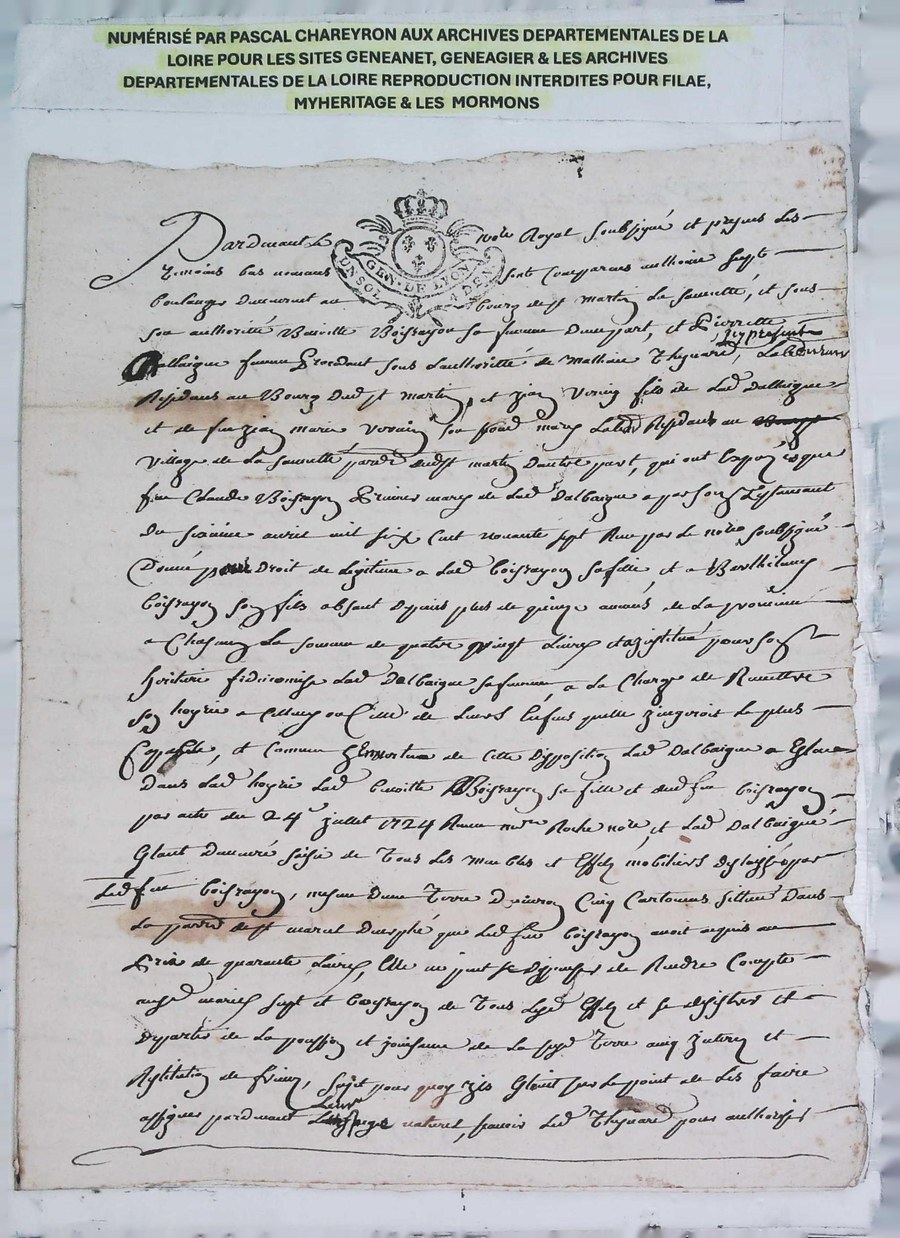 NUMÉRISÉ PAR PASCAL CHAREYRON AUX ARCHIVES DEPARTEMENTALES DE LA
LOIRE POUR LES SITES GENEANET, GENEAGIER & LES ARCHIVES
DEPARTEMENTALES DE LA LOIRE REPRODUCTION INTERDITES POUR FILAE,
MYHERITAGE & LES MORMONS
GEN. DE LYON
UN SOL 4 DEN
Pardevant le note Royal soubsigné et presens les
temoins bas nommés sont comparus anthoine sept
boulanger demeurant au bourg de st martin la sauveté, et sous
son authorité Benoitte Boisrayon sa femme d'une part, et Pierrette
icy present
Dalbaigue femme procedant sous l'authorité de Mathieu Thynard,
Residans au Bourg dud st martin, et jean fils de lad dalbaigue
et de feu jean marie son second mary Residans au
village de la sauveté parsse dud st martin d'autre part, qui ont exposé que
feu Claude Boisrayon premier mary de lad dalbaigue a par son testament
du sixieme avril mil six cent nonante sept Reçu par le note soubsigné
Donné pour Droit de legitime a lad boisrayon sa fille, et a Barthelemy
boisrayon son fils absent depuis plus de quinze années de la province
a chascun la somme de quatre vingt livres et a institué pour son
heritiere fideicomise lad Dalbaigue sa femme, a la charge de Remettre
son hoyrie a celluy ou celle de leurs enfans quelle jugeroit le plus
capable, et comme en vertu de cette disposition lad Dalbaigue a
dans lad hoyrie lad benoitte Boisrayon sa fille et dud feu boisrayon
par acte du 24e juillet 1724 Receu me Roche note, et lad Dalbaigue
estant demeuré saisie de tous les meubles et effets mobiliers delaissés par
led feu boisrayon, mesme d'une terre d'environ cinq cartonnés sittuée dans
la parsse de st marcel durphé que led feu boisrayon avoit acquis au
prix de quarante livres, elle ne peut se dispenser de Rendre compte
aux mariés sept et boisrayon de tous lesd effets et se desister et
departir de la possession et jouissance de la terre avec interets et
Restitution de fruits, sujet pour quoy ils estoient sur le point de les faire
assigner pardevant leur juge naturel, scavoir led Thynard pour authoriser